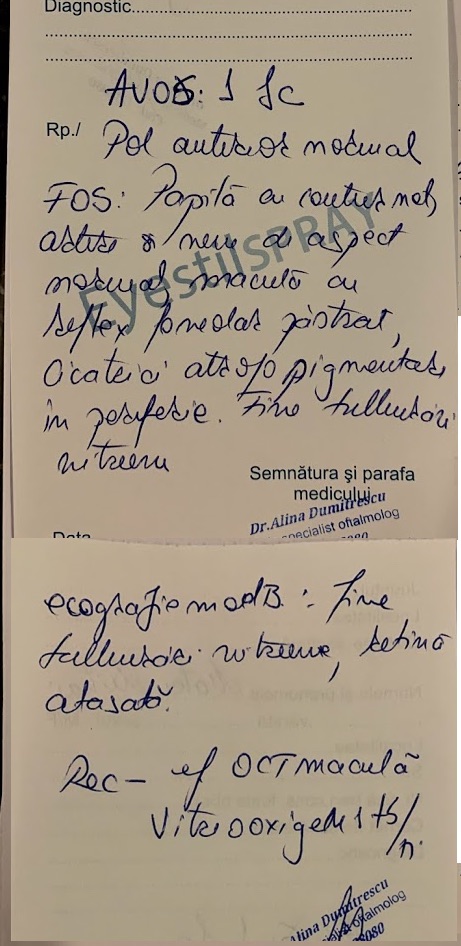 Diagnostic
AVOS: 1 fc
Rp./ Pol anterior normal
FOS: Papilă cu contur net,
artere și vene de aspect
normal, maculă cu
reflex foveolar păstrat,
Cicatrici atrofo pigmentare
în periferie. Fine tulburări
vitreene
EyestilSPRAY
Semnătura şi parafa
medicului
Dr. Alina Dumitrescu
specialist oftalmolog
Data
ecografie mod B: fine
tulburări vitreene, retină
atașată.
Rec – ef OCT maculă
Vitreooxigen 1 tb/
Alina Dumitrescu
oftalmolog
8080